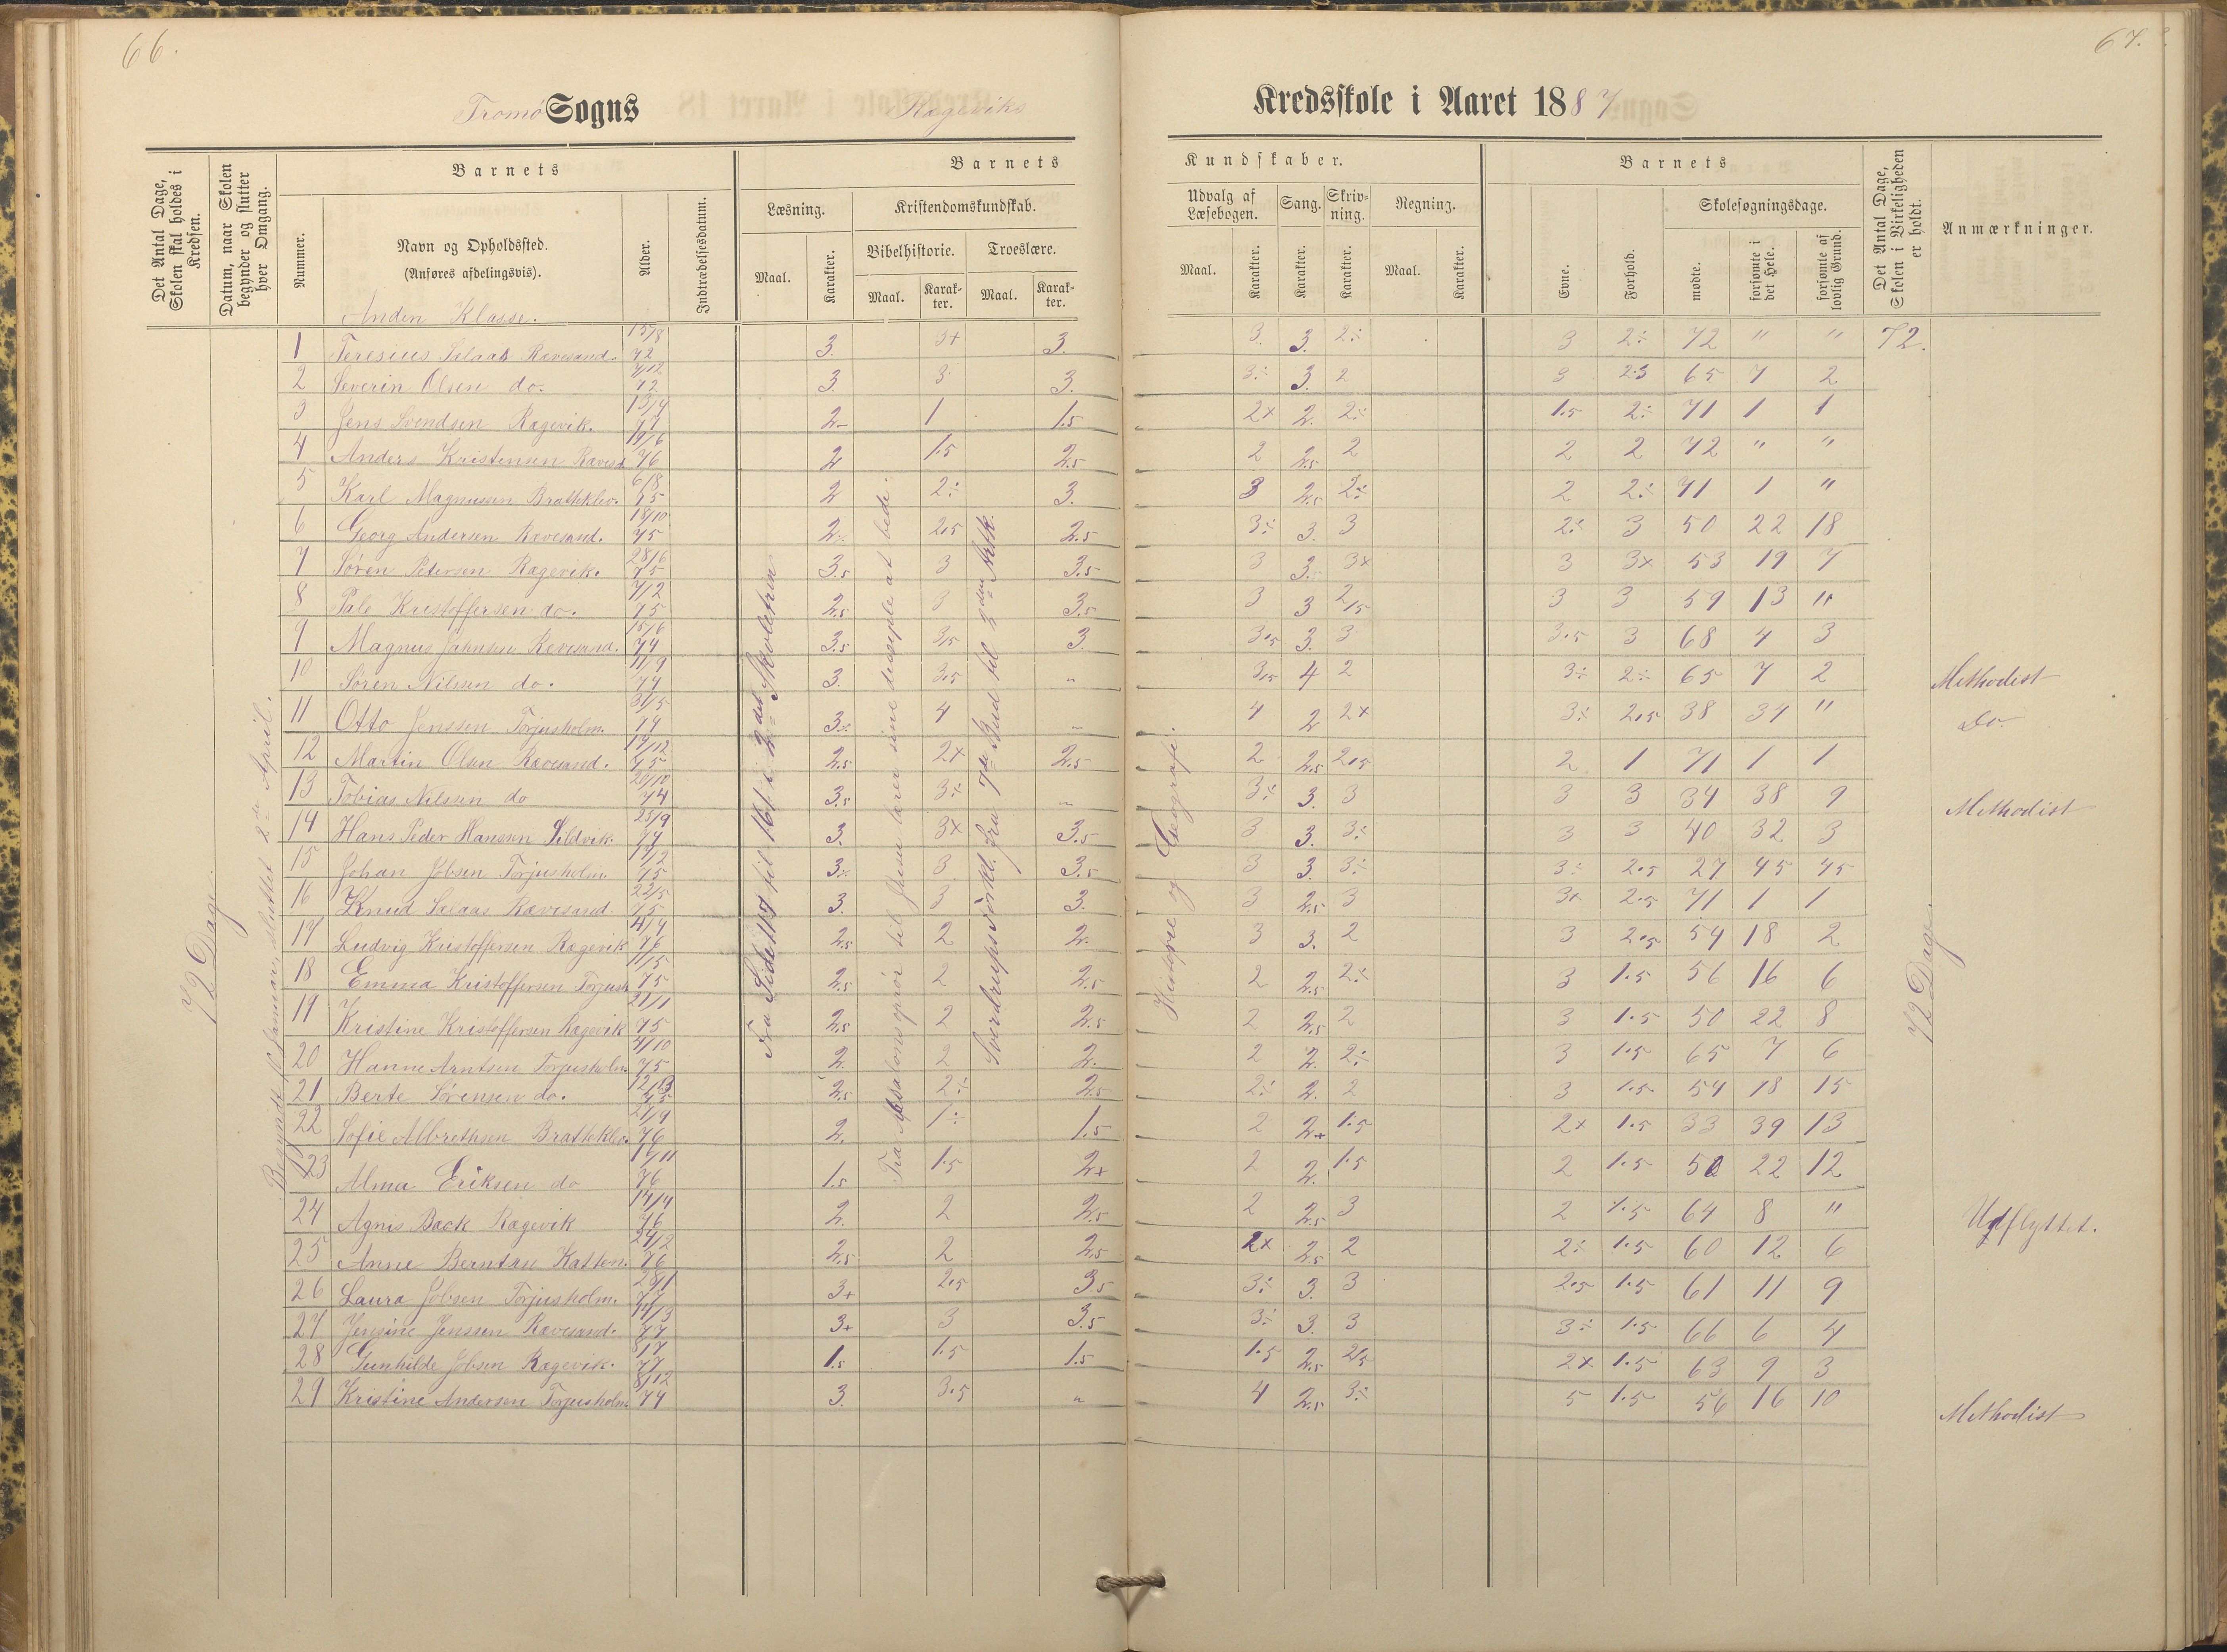 66.
67.
Tromö Sogns Rægeviks Kredsskole i Aaret 1887
Det Antal Dage, Skolen skal holdes i Kredsen.
Datum, naar Skolen begynder og slutter hver Omgang.
Barnets
Nummer.
Navn og Opholdssted.
(Anføres afdelingsvis).
Alder.
Indtrædelsesdatum.
Barnets Kundskaber.
Læsning.
Maal. Karakter.
Kristendomskundskab.
Bibelhistorie. Troeslære.
Maal. Karakter. Maal. Karakter.
Udvalg af Læsebogen. Sang. Skrivning. Regning.
Maal. Karakter. Karakter. Karakter. Maal. Karakter.
Barnets
Evne. Forhold.
Skolesøgningsdage.
mødte. forsømte i det Hele. forsømte af lovlig Grund.
Det Antal Dage, Skolen i Virkeligheden er holdt.
Anmærkninger.
Anden Klasse.
72 Dage.
Begyndt Januar, sluttet 2den April.
Fra Side 117 til 161 i 2det Skoletrin
Fra Absaloms oprör til Jesus lærer sine disciple at bede.
Sverdrups Forkl. fra 7de Bud til 2den Artk.
Historie og Geografi.
72 Dage.
1 Teresius Salaas Rævesand. 15/8 72 3. 3+ 3. 3. 3. 2÷ 3 2÷ 72 " " 72.
2 Severin Olsen do. 7/12 72 3. 3 3. 3÷ 3. 2 3 2.3 65 7 2
3 Jens Svendsen Rægevik. 13/4 77 2- 1 1.5 2x 2. 2÷ 1.5 2÷ 71 1 1
4 Anders Kristensen Rævesd. 19/6 76 2 1.5 2.5 2 2.5 2 2 2 72 " "
5 Karl Magnussen Bratteklev. 6/8 75 2 2÷ 3. 3 2.5 2÷ 2 2÷ 71 1 "
6 Georg Andersen Rævesand. 18/10 75 2÷ 2.5 2.5 3÷ 3. 3 2÷ 3 50 22 18
7 Sören Petersen Rægevik. 28/6 75 3.5 3 3.5 3 3. 3x 3 3x 53 19 7
8 Pale Kristoffersen do. 7/2 75 2.5 3 3.5 3 3 2.5 3 3 59 13 "
9 Magnus Jahnsen Rævesand. 15/6 74 3.5 3.5 3. 3.5 3. 3 3.5 3 68 4 3
10 Sören Nilssen do. 11/9 74 3. 3.5 " 3.5 4 2 3÷ 2÷ 65 7 2 Methodist
11 Otto Jenssen Torjusholm. 31/5 74 3÷ 4 " 4 2 2x 3÷ 2.5 38 34 " Do
12 Martin Olsen Rævesand. 17/12 75 2.5 2x 2.5 2 2.5 2.5 2 1 71 1 1
13 Tobias Nilssen do 20/10 74 3.5 3÷ " 3÷ 3. 3 3 3 34 38 9 Methodist
14 Hans Peder Hanssen Sildvik. 25/9 74 3. 3x 3.5 3 3. 3÷ 3 3 40 32 3
15 Johan Jobsen Torjusholm. 17/2 75 3÷ 3 3.5 3 3. 3÷ 3÷ 2.5 27 45 45
16 Knud Salaas Rævesand. 22/5 75 3. 3 3. 3 2.5 3 3x 2.5 71 1 1
17 Ludvig Kristoffersen Rægevik 4/4 76 2.5 2 2. 3 3. 2 3 2.5 54 18 2
18 Emma Kristoffersen Torjush 11/5 75 2.5 2 2.5 2 2.5 2÷ 3 1.5 56 16 6
19 Kristine Kristoffersen Rægevik 21/1 75 2.5 2 2.5 2 2.5 2 3 1.5 50 22 8
20 Hanne Arntsen Torjusholm. 4/10 75 2. 2 2. 2 2. 2÷ 3 1.5 65 7 6
21 Berte Sörensen do. 12/3 75 2.5 2÷ 2.5 2÷ 2. 2 3 1.5 54 18 15
22 Sofie Albrethsen Bratteklev. 21/4 76 2. 1÷ 1.5 2 2+ 1.5 2x 1.5 33 39 13
23 Alma Eriksen do 17/11 76 1.5 1.5 2x 2 2. 1.5 2 1.5 50 22 12
24 Agnis Back Rægevik 14/4 76 2. 2 2.5 2 2.5 3 2 1.5 64 8 " Udflyttet.
25 Anne Berntsen Katten. 24/2 76 2.5 2 2.5 2x 2.5 2 2÷ 1.5 60 12 6
26 Laura Jobsen Torjusholm. 28/1 77 3+ 2.5 3.5 3÷ 3. 3 2.5 1.5 61 11 9
27 Jensine Jenssen Rævesand. 14/3 77 3+ 3 3.5 3÷ 3. 3 3÷ 1.5 66 6 4
28 Gunhilde Jobsen Rægevik. 8/7 77 1.5 1.5 1.5 1.5 2.5 2.5 2x 1.5 63 9 3
29 Kristine Andersen Torjusholm. 8/12 74 3. 3.5 " 4 2.5 3÷ 5 1.5 56 16 10 Methodist